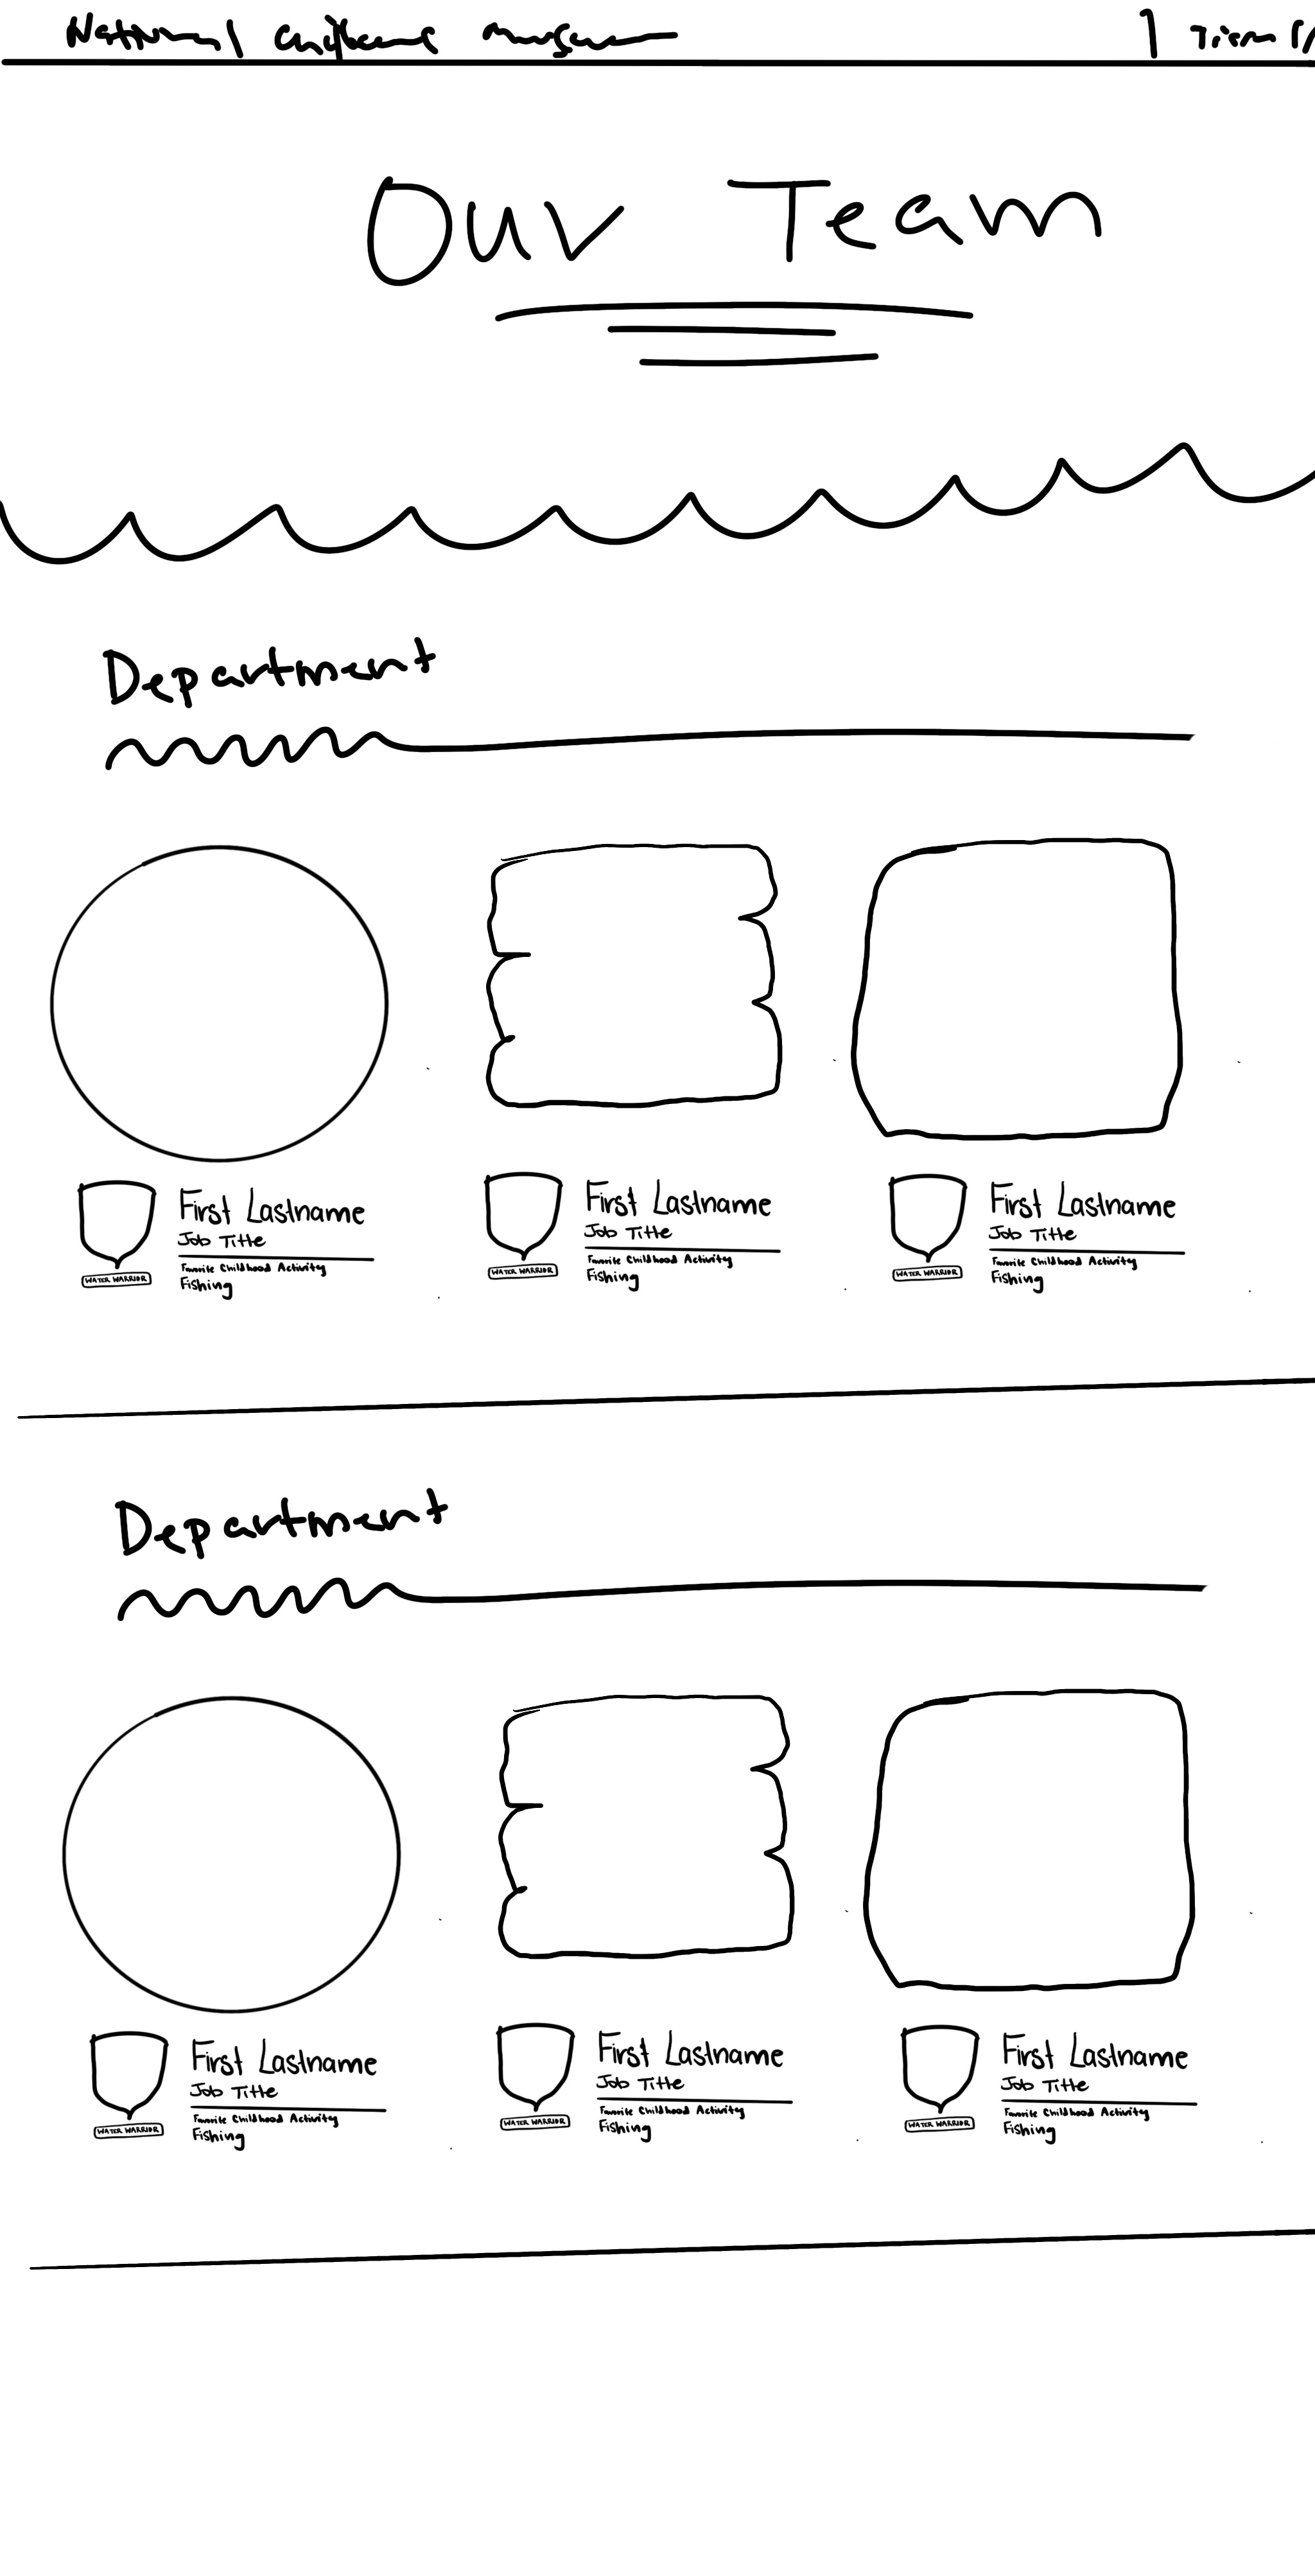 National
Our Team
Department
First Lastname
Job Title
Favorite Childhood Activity
Fishing
WATER WARRIOR
First Lastname
Job Title
Favorite Childhood Activity
Fishing
WATER WARRIOR
First Lastname
Job Title
Favorite Childhood Activity
Fishing
WATER WARRIOR
Department
First Lastname
Job Title
Favorite Childhood Activity
Fishing
WATER WARRIOR
First Lastname
Job Title
Favorite Childhood Activity
Fishing
WATER WARRIOR
First Lastname
Job Title
Favorite Childhood Activity
Fishing
WATER WARRIOR